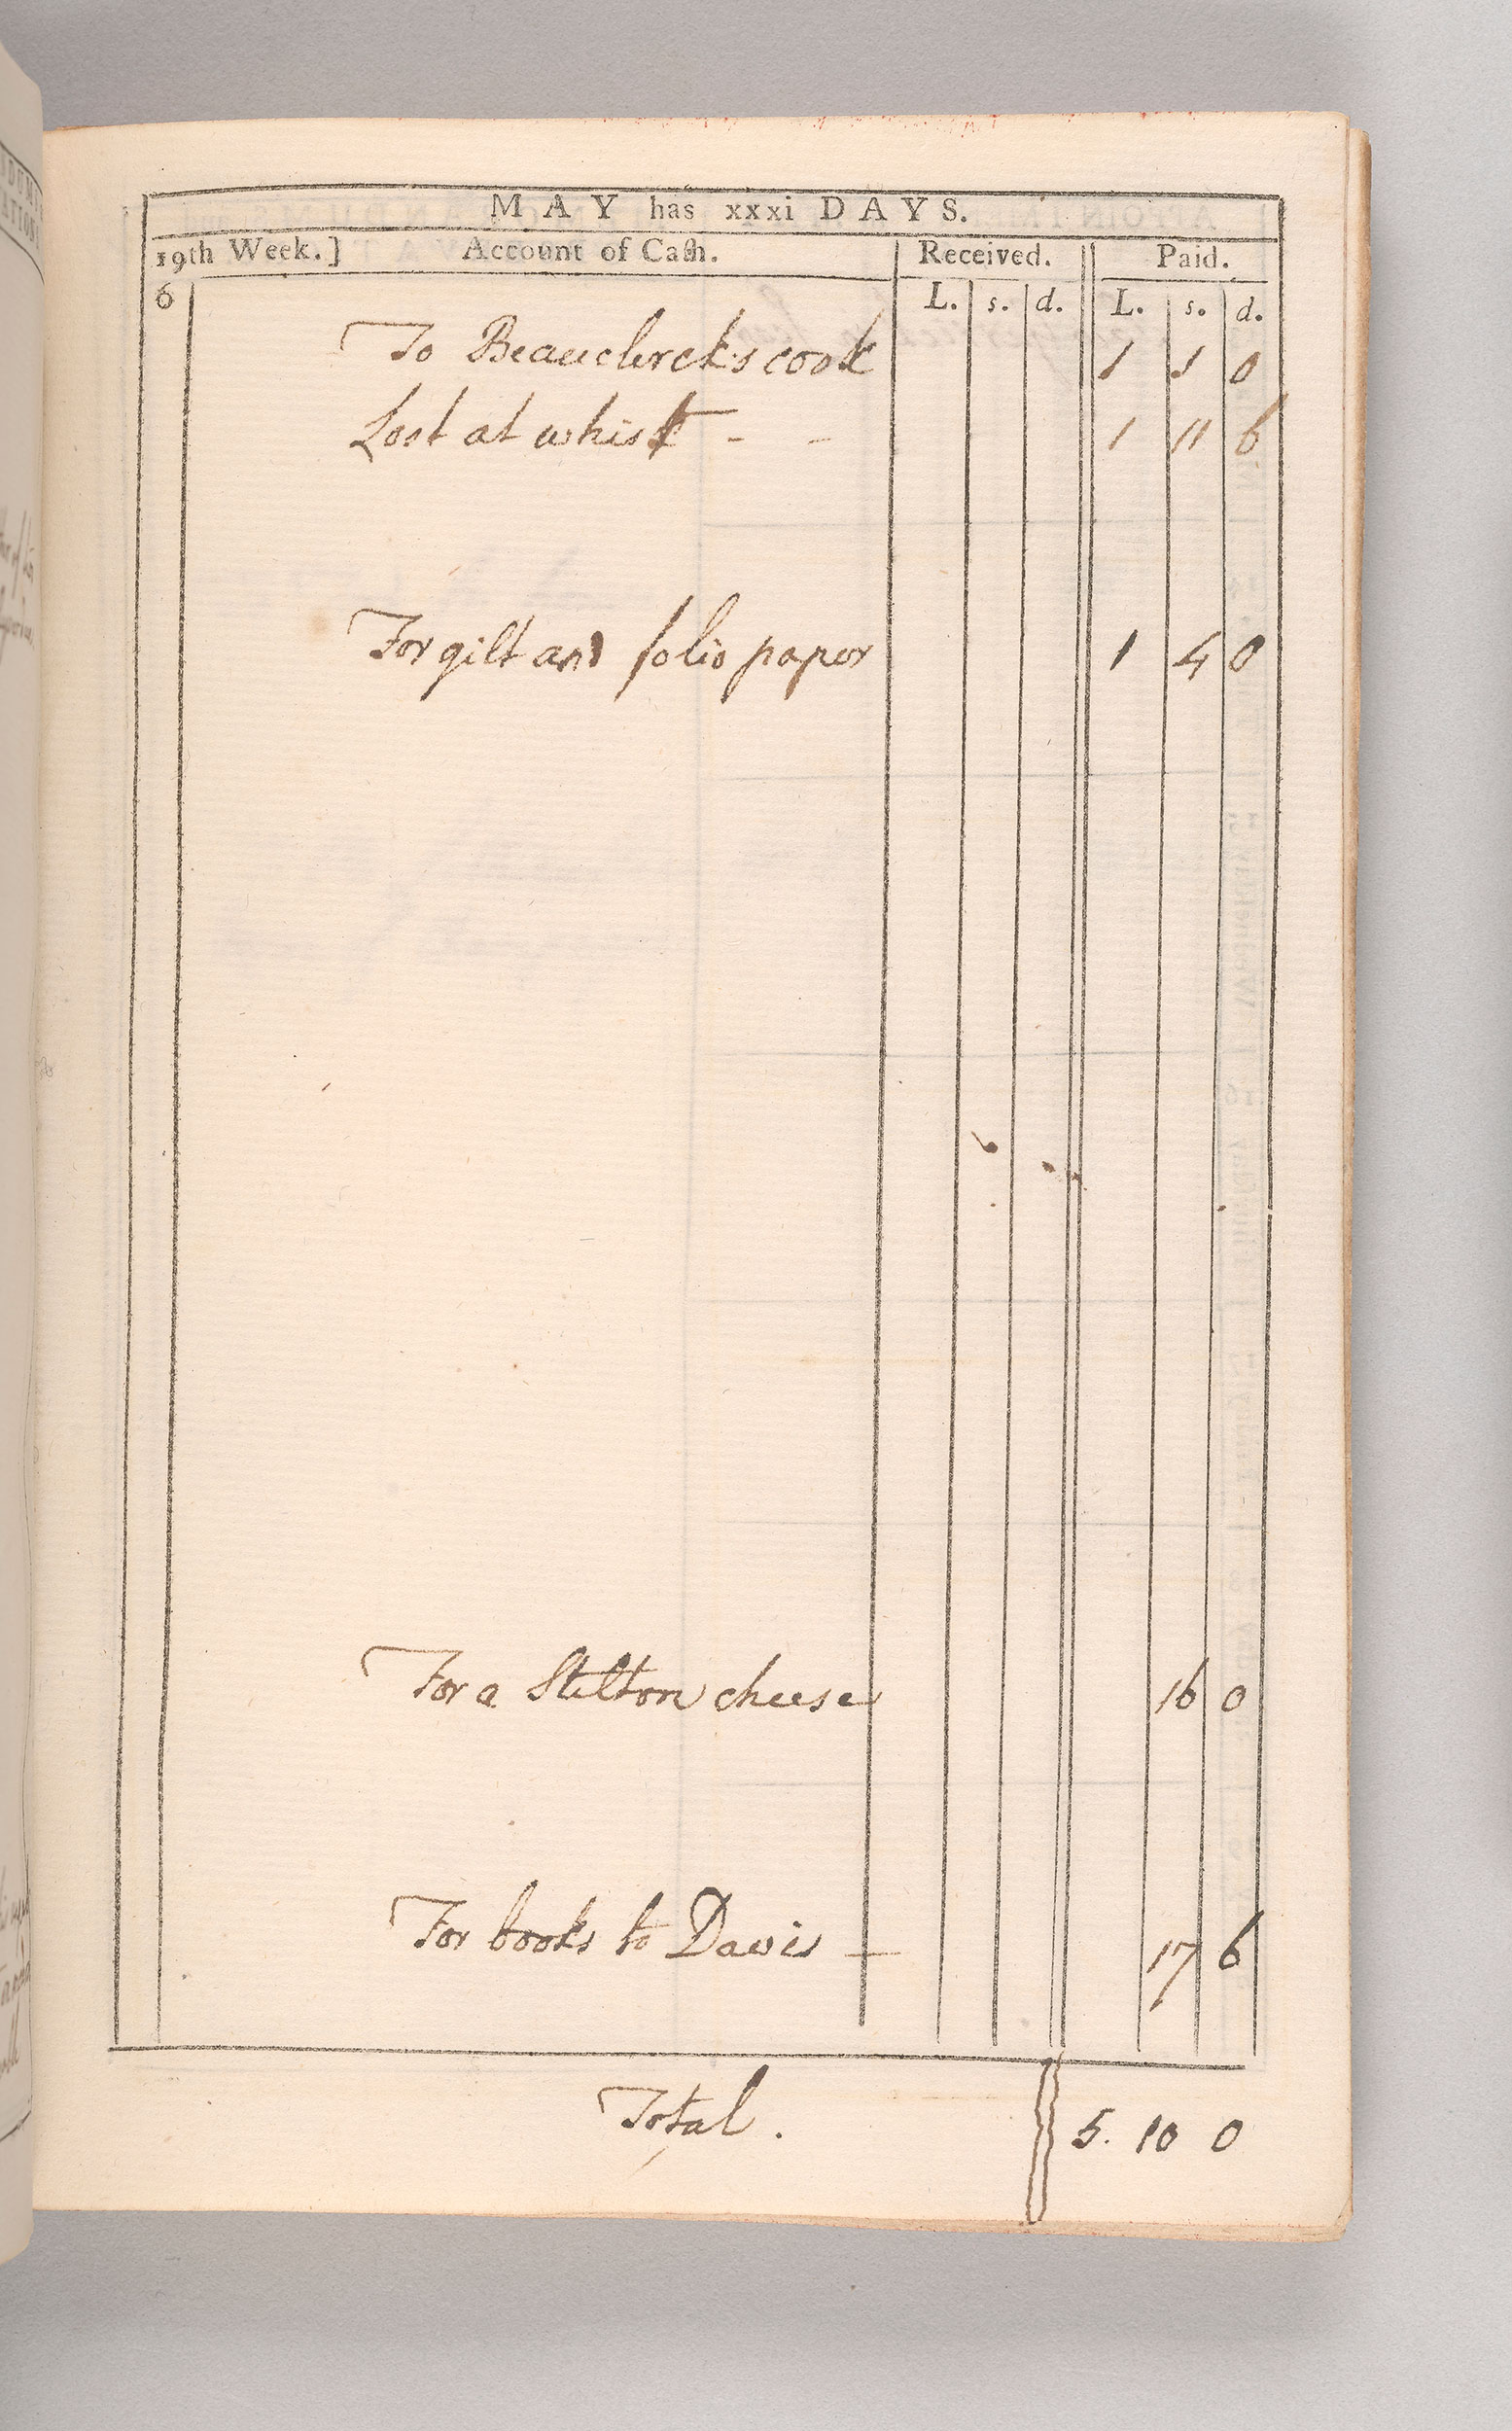 MAY has xxxi DAYS.
19th Week.] Account of Cash. Received. Paid.
6 L. s. d. L. s. d.
To Beauclerck's cook 1 1 0
Lost at whist - - 1 11 6
For gilt and folio paper 1 4 0
For a Stilton cheese 16 0
For books to Davis — 17 6
Total. 5. 10 0